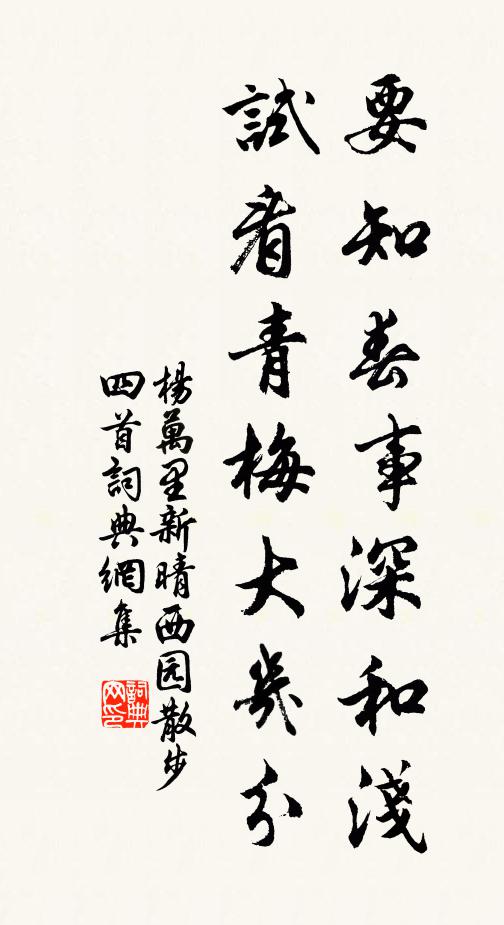 要知春事深和淺
試看青梅大幾分
楊萬里新晴西园散步
四首詞典網集
詞典网印